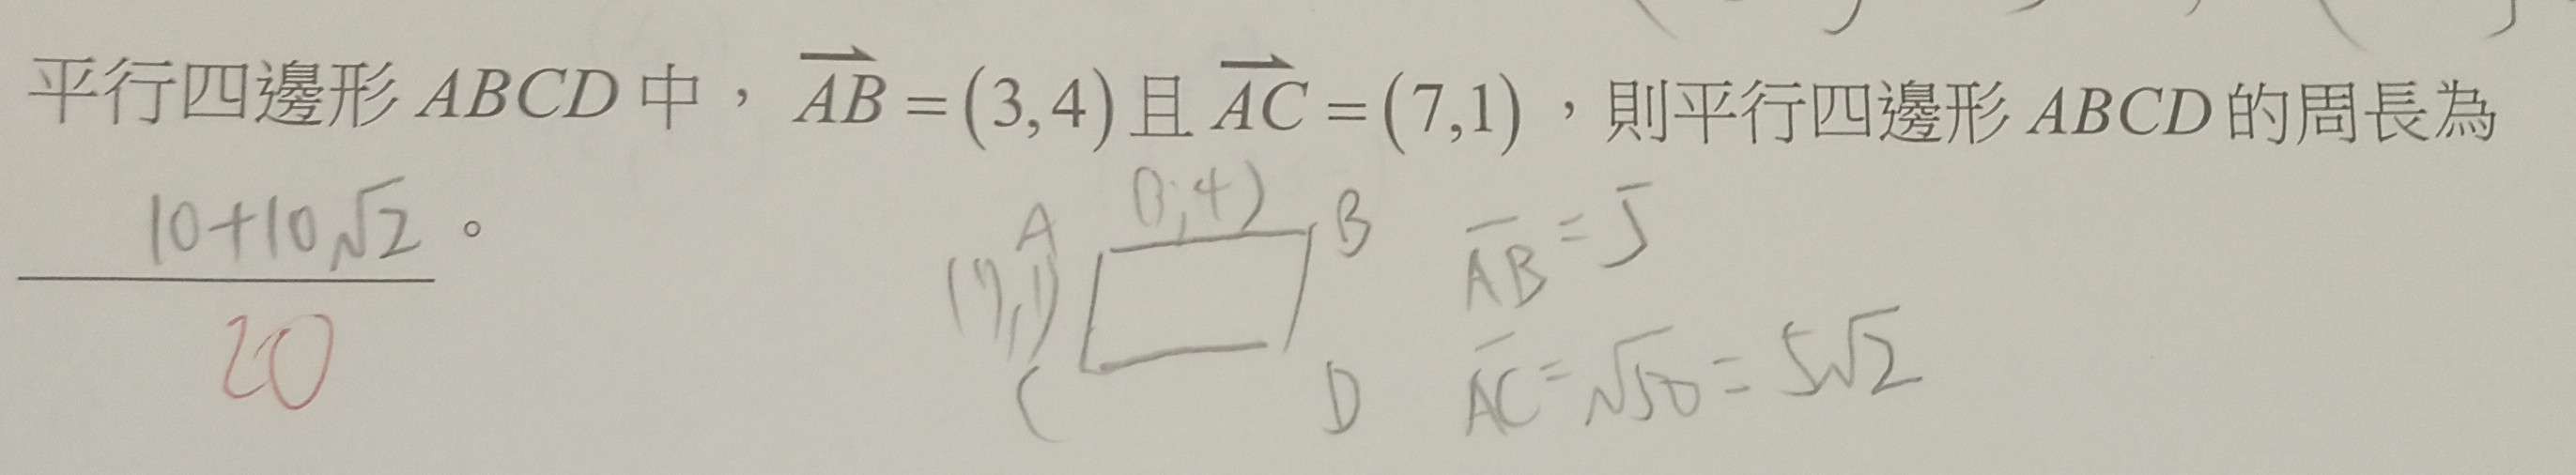 平行四邊形ABCD中，AB=(3,4)且AC=(7,1)，則平行四邊形ABCD的周長為
10+10√2。
20
A (3,4) B
(7,1)
C D
AB=5
AC=√50=5√2